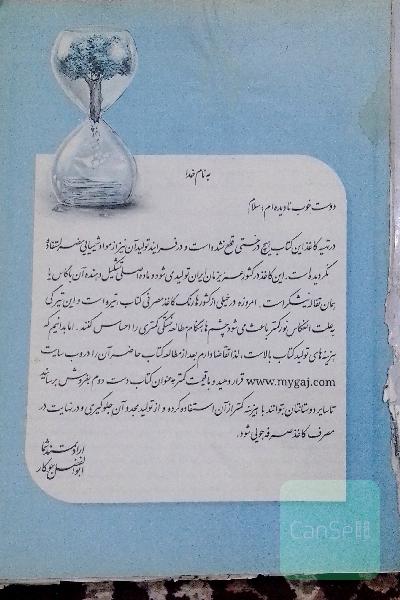 به نام خدا
دوست خوب نادیده‌ام، سلام
در تهیه کاغذ این کتاب هیچ درختی قطع نشده است و در فرایند تولید آن نیز از مواد شیمیایی مضر استفاده
نگردیده است. این کاغذ در کشور عزیزمان ایران تولید می شود و ماده اصلی تشکیل دهنده آن باگاس یا
همان تفاله نیشکر است. امروزه در خیلی از کشورها رنگ کاغذ مصرفی کتاب، تیره است و این تیرگی
به علت انعکاس نور کمتر باعث می شود چشم ها هنگام مطالعه خستگی کمتری را احساس کنند. اما بدانیم که
هزینه های تولید کتاب بالاست، لذا تقاضا دارم بعد از مطالعه کتاب حاضر آن را در وب سایت
www.mygaj.com قرار دهید و با قیمت کمتر به عنوان کتاب دست دوم بفروش برسانید
تا سایر دوستانتان بتوانند با هزینه کمتر از آن استفاده کرده و از تولید مجدد آن جلوگیری و در نهایت در
مصرف کاغذ صرفه جویی شود.
ارادتمند شما
ابوالفضل جوکار
CanSell